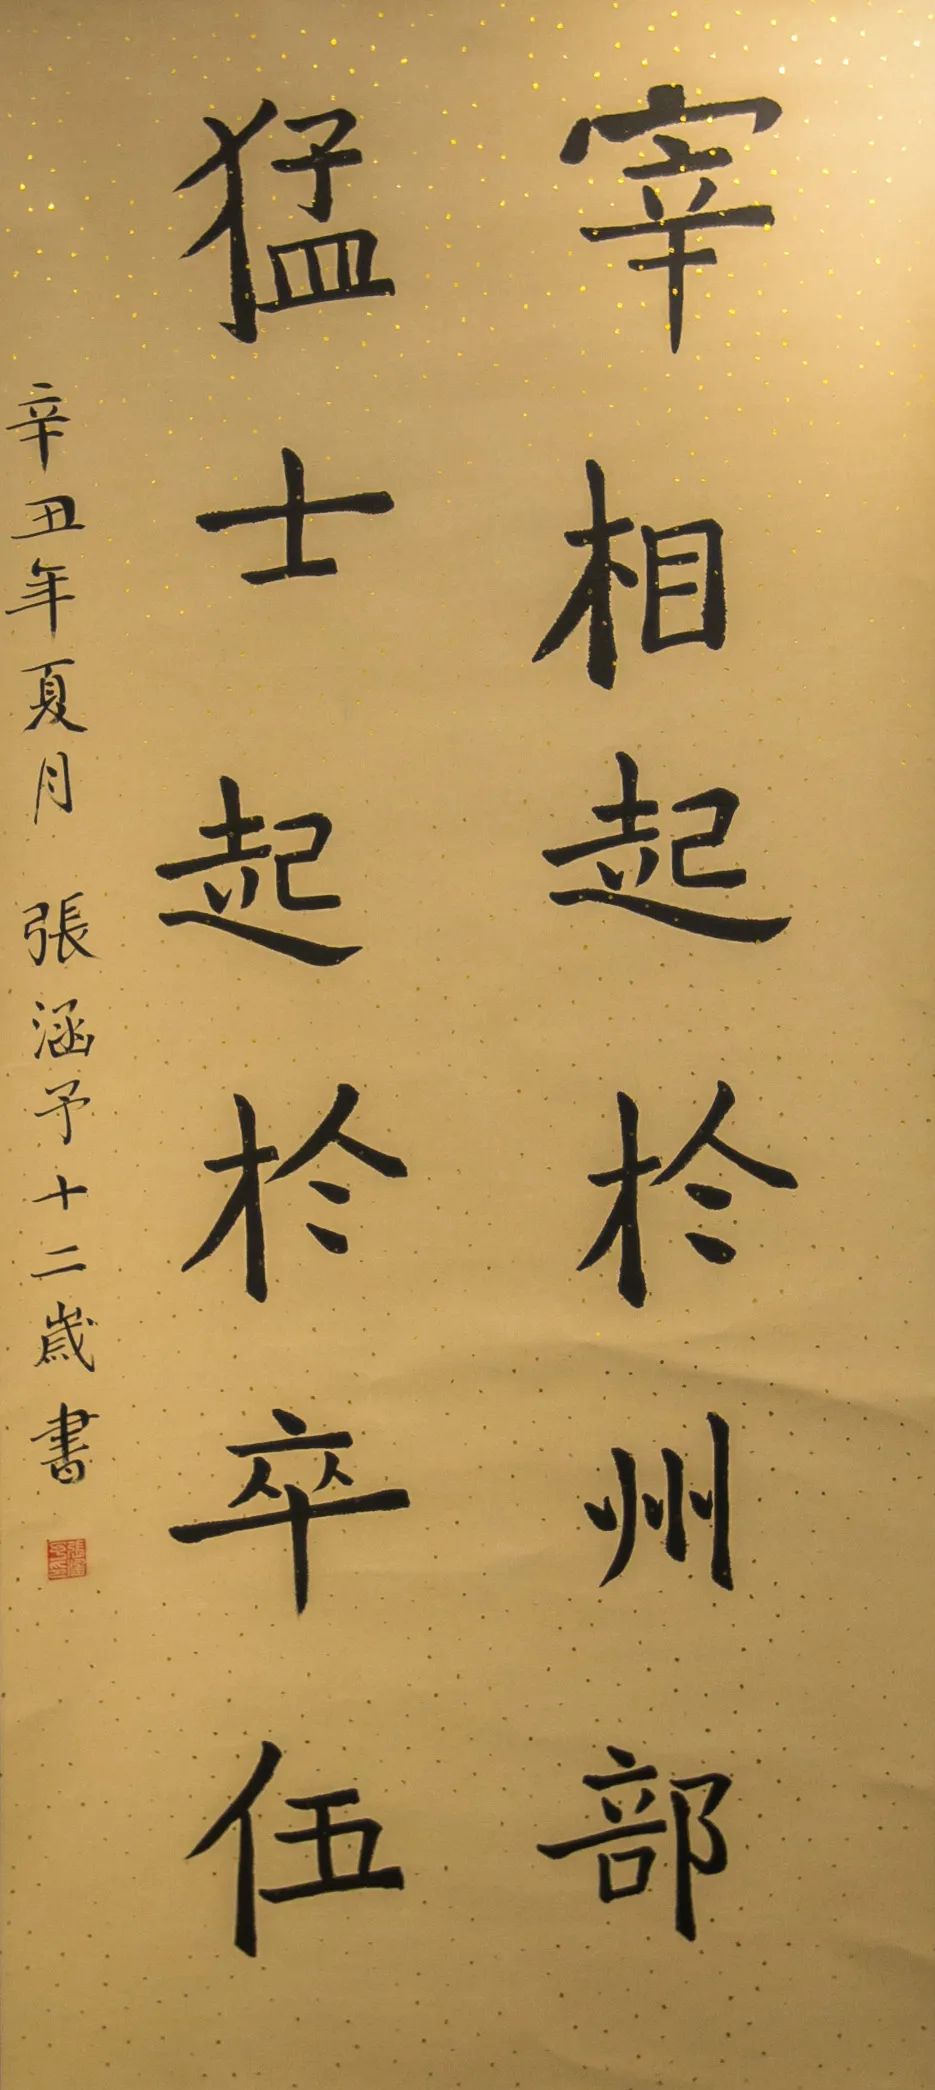 宰相起於州部
猛士起於卒伍
辛丑年夏月 張涵予十二歲書